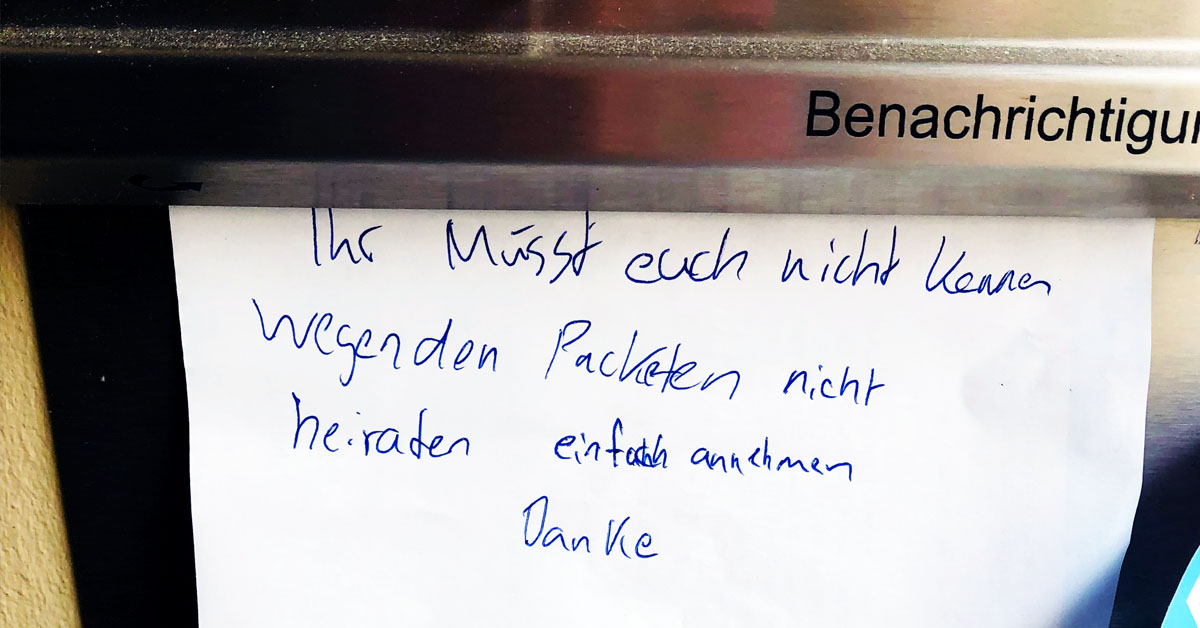 Benachrichtigun
Ihr Müsst euch nicht Kennen
wegenden Packeten nicht
heiraten einfach annehmen
Danke